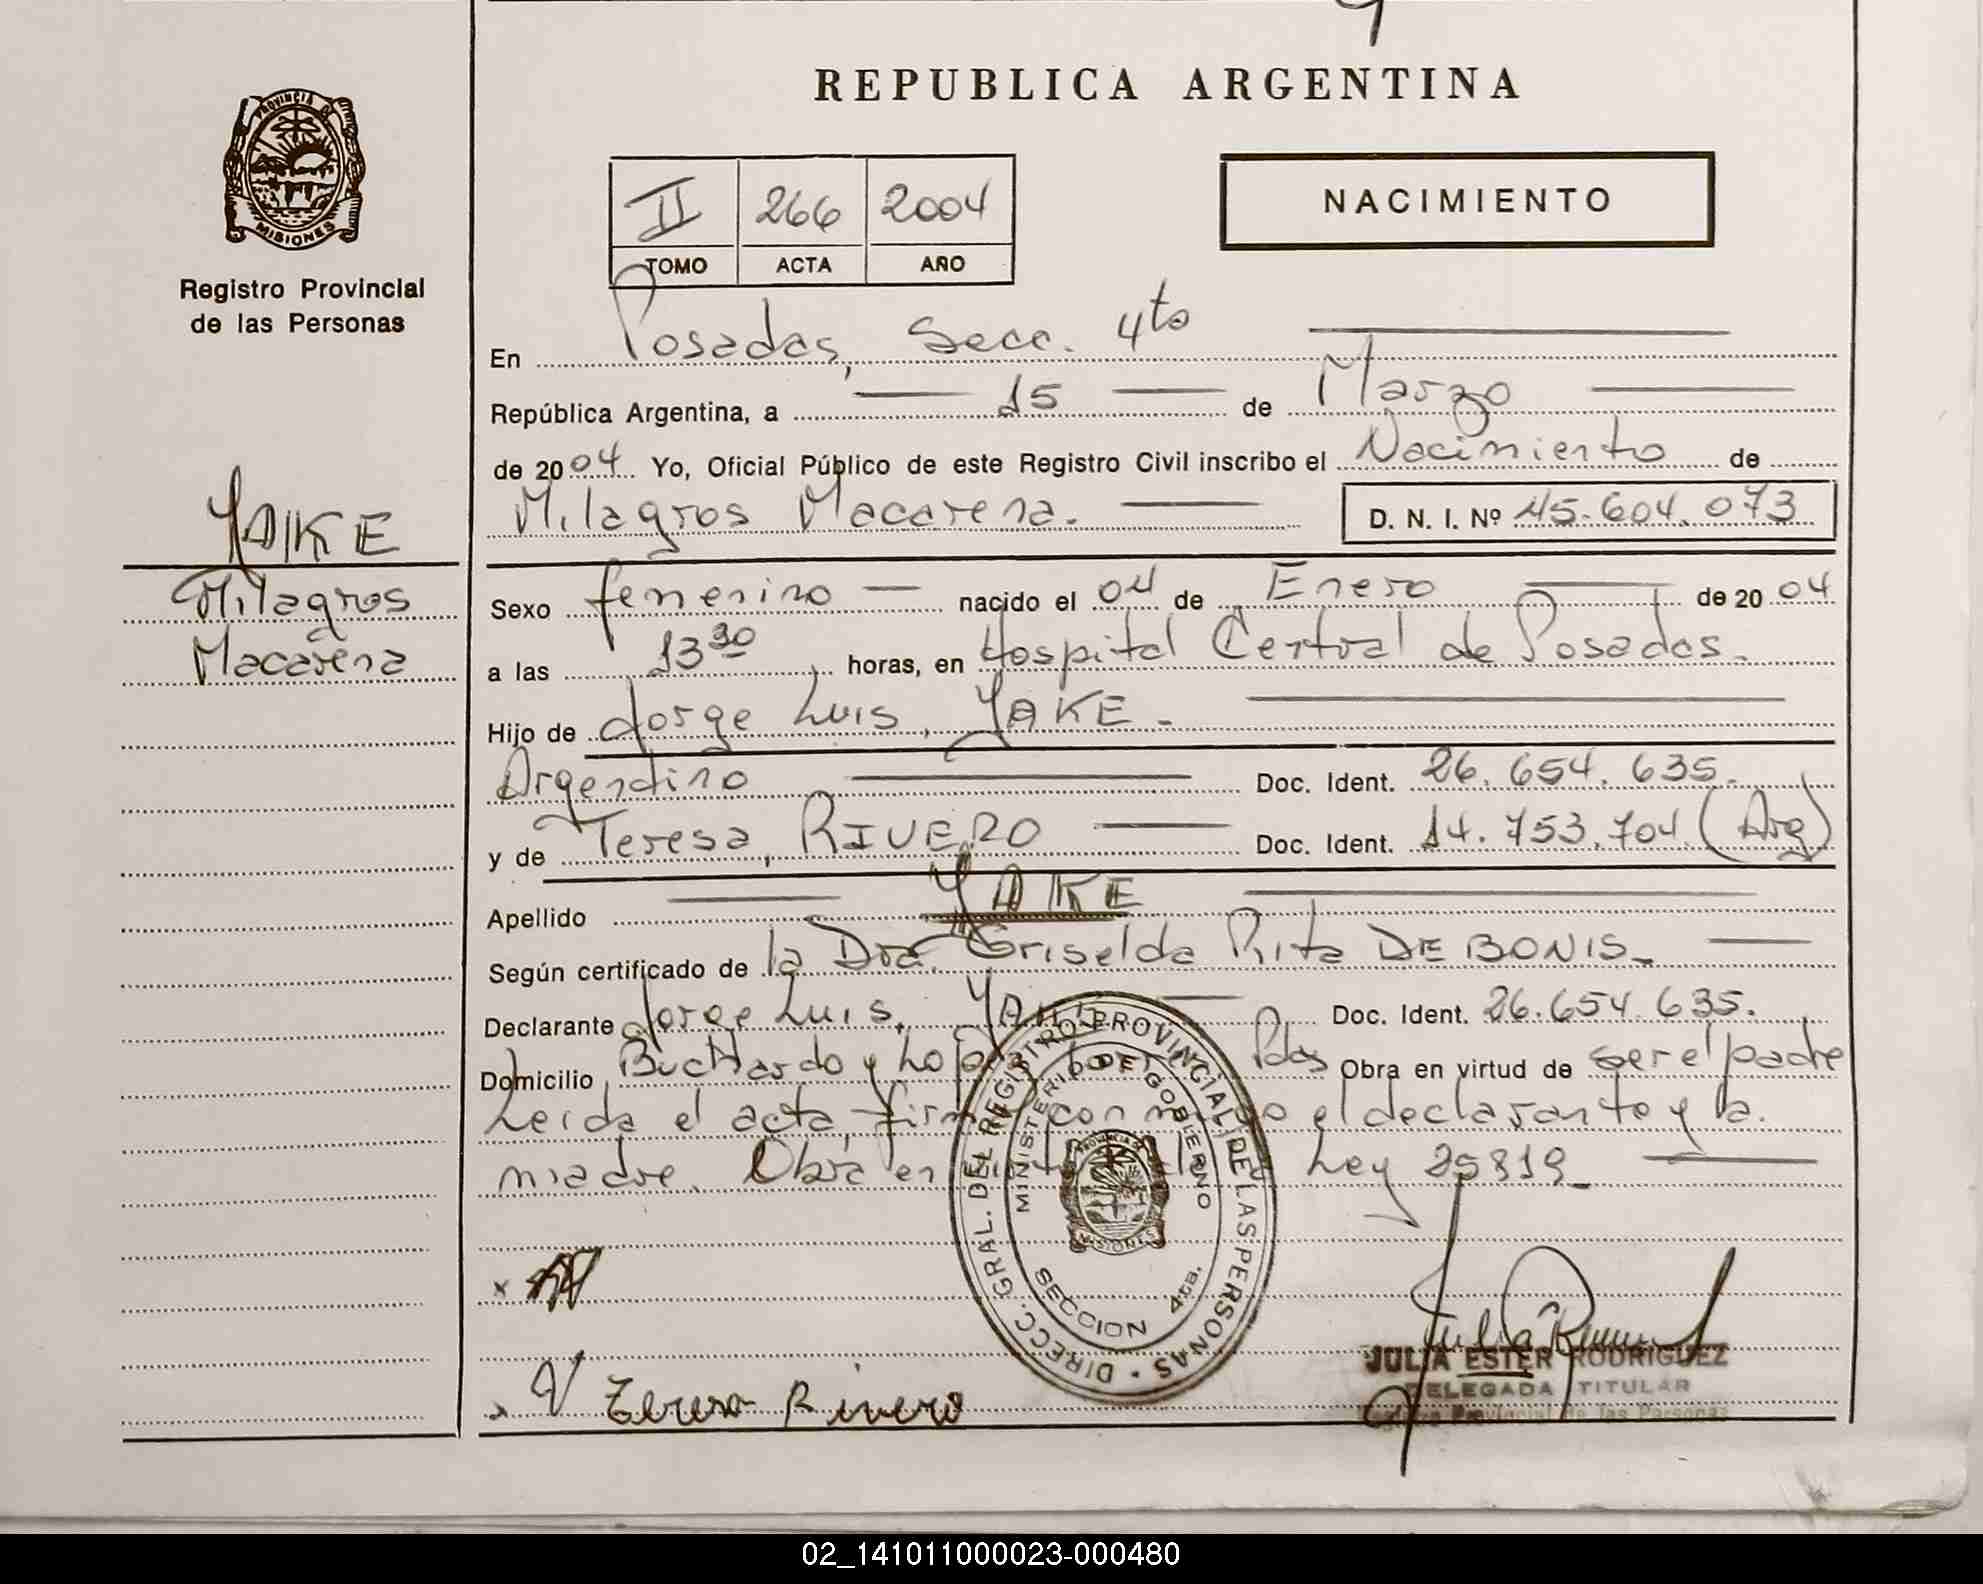 REPUBLICA ARGENTINA
PROVINCIA DE
MISIONES
Registro Provincial
de las Personas
II 266 2004
TOMO ACTA AÑO
NACIMIENTO
En Posadas, Secc. 4to
República Argentina, a 15 de Marzo
de 2004 Yo, Oficial Público de este Registro Civil inscribo el Nacimiento de
Milagros Macarena. D. N. I. Nº 45.604.073
YAKE
Milagros
Macarena
Sexo femenino nacido el 04 de Enero de 2004
a las 13 30 horas, en Hospital Central de Posadas.
Hijo de Jorge Luis, YAKE.
Argentino Doc. Ident. 26.654.635.
y de Teresa, RIVERO Doc. Ident. 14.753.704 (Arg)
Apellido YAKE
Según certificado de la Dra. Griselda Rita DE BONIS.
Declarante Jorge Luis, YAKE Doc. Ident. 26.654.635.
Domicilio Buchardo y Pdas Obra en virtud de ser el padre
Leida el acta, firman conmigo el declarante y la
madre. Obra en Ley 25819
DIRECC. GRAL. DEL REGISTRO PROVINCIAL DE LAS PERSONAS
MINISTERIO DE GOBIERNO
PROVINCIA DE
MISIONES
SECCION 4ta.
x
Teresa Rivero
JULIA ESTER RODRIGUEZ
DELEGADA TITULAR
Registro Provincial de las Personas
02_141011000023-000480